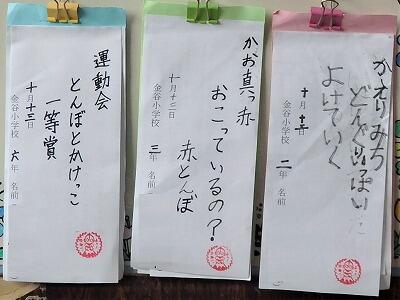 運動会
とんぼとかけっこ
一等賞
十月十三日
金谷小学校 六年 名前
かお真っ赤
おこっているの?
赤とんぼ
十月十三日
金谷小学校 三年 名前
かえりみち
よけていく
金谷小学校 二年 名前